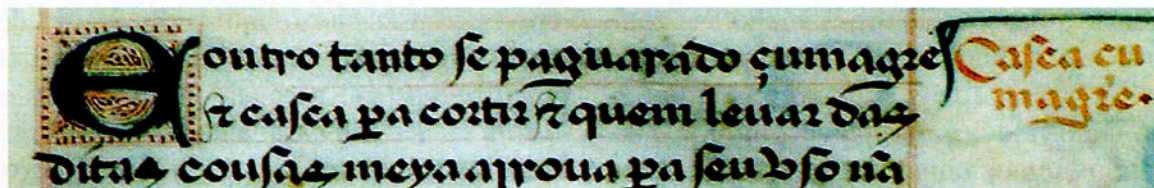 E outro tanto se paguara do çumagre
⁊ casca p̱a cortir ⁊ quem leuar das
ditas cousas meya arroua p̱a seu vso nã
Casca çu
magre.